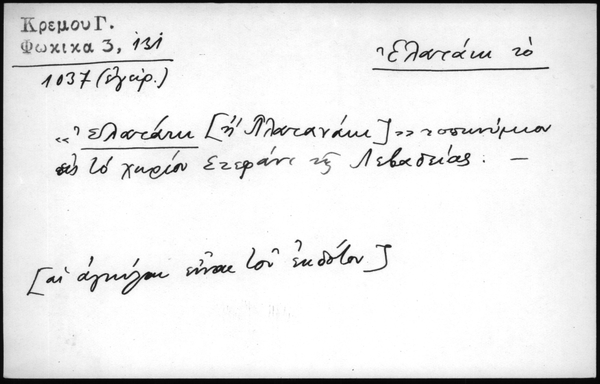 Κρεμου Γ.
Φωκικα 3, 131
1037 (ἔγγρ.)
Ἐλατάκι τὸ
«Ἐλατάκι [ἢ Πλατανάκι]» τοπωνύμιον
εἰς τὸ χωρίον Στεφάνι τῆς Λεβαδείας. —
[αἱ ἀγκύλαι εἶναι τοῦ ἐκδότου]